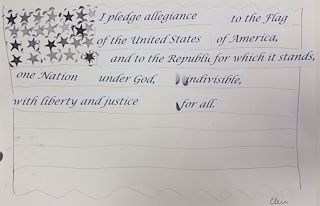 I pledge allegiance to the Flag
of the United States of America,
and to the Republic for which it stands,
one Nation under God, indivisible,
with liberty and justice for all.